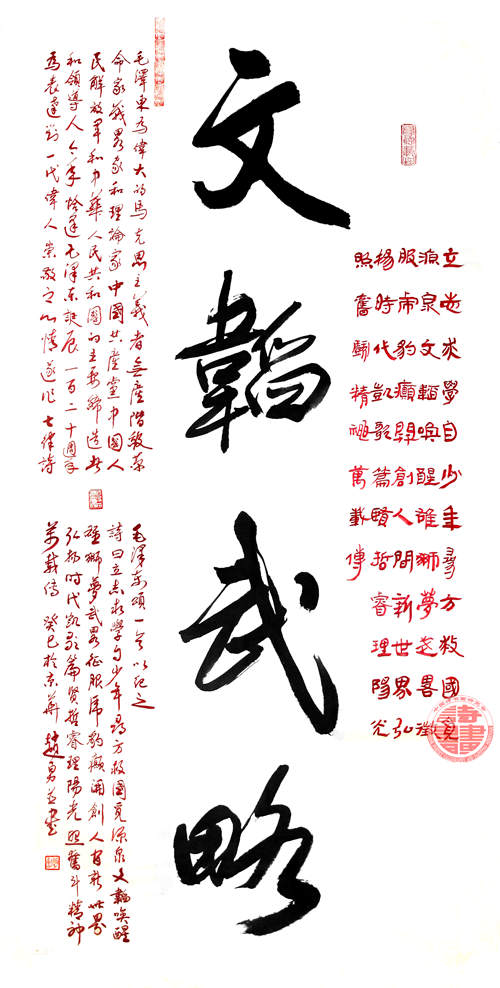 立志求學自少年尋方救國覓
源泉文韜喚醒雄獅夢武畧徵
服虎豹癲開創人間新世界弘
揚時代凱歌篇賢哲睿理陽光
照奮鬭精神萬載傳
文韜武略
毛澤東為偉大的馬克思主義者無產階級革
命家戰畧家和理論家中國共產黨中國人
民解放軍和中華人民共和國的主要締造者
和領導人今年恰逢毛澤東誕辰一百二十週年
為表達對一代偉人崇敬之心情遂作七律詩
毛澤東頌一首以記之
詩曰立志求學自少年尋方救國覓源泉文韜喚醒
雄獅夢武畧征服虎豹癲開創人間新世界
弘揚時代凱歌篇賢哲睿理陽光照奮斗精神
萬載傳 癸巳於京華 趙勇並書